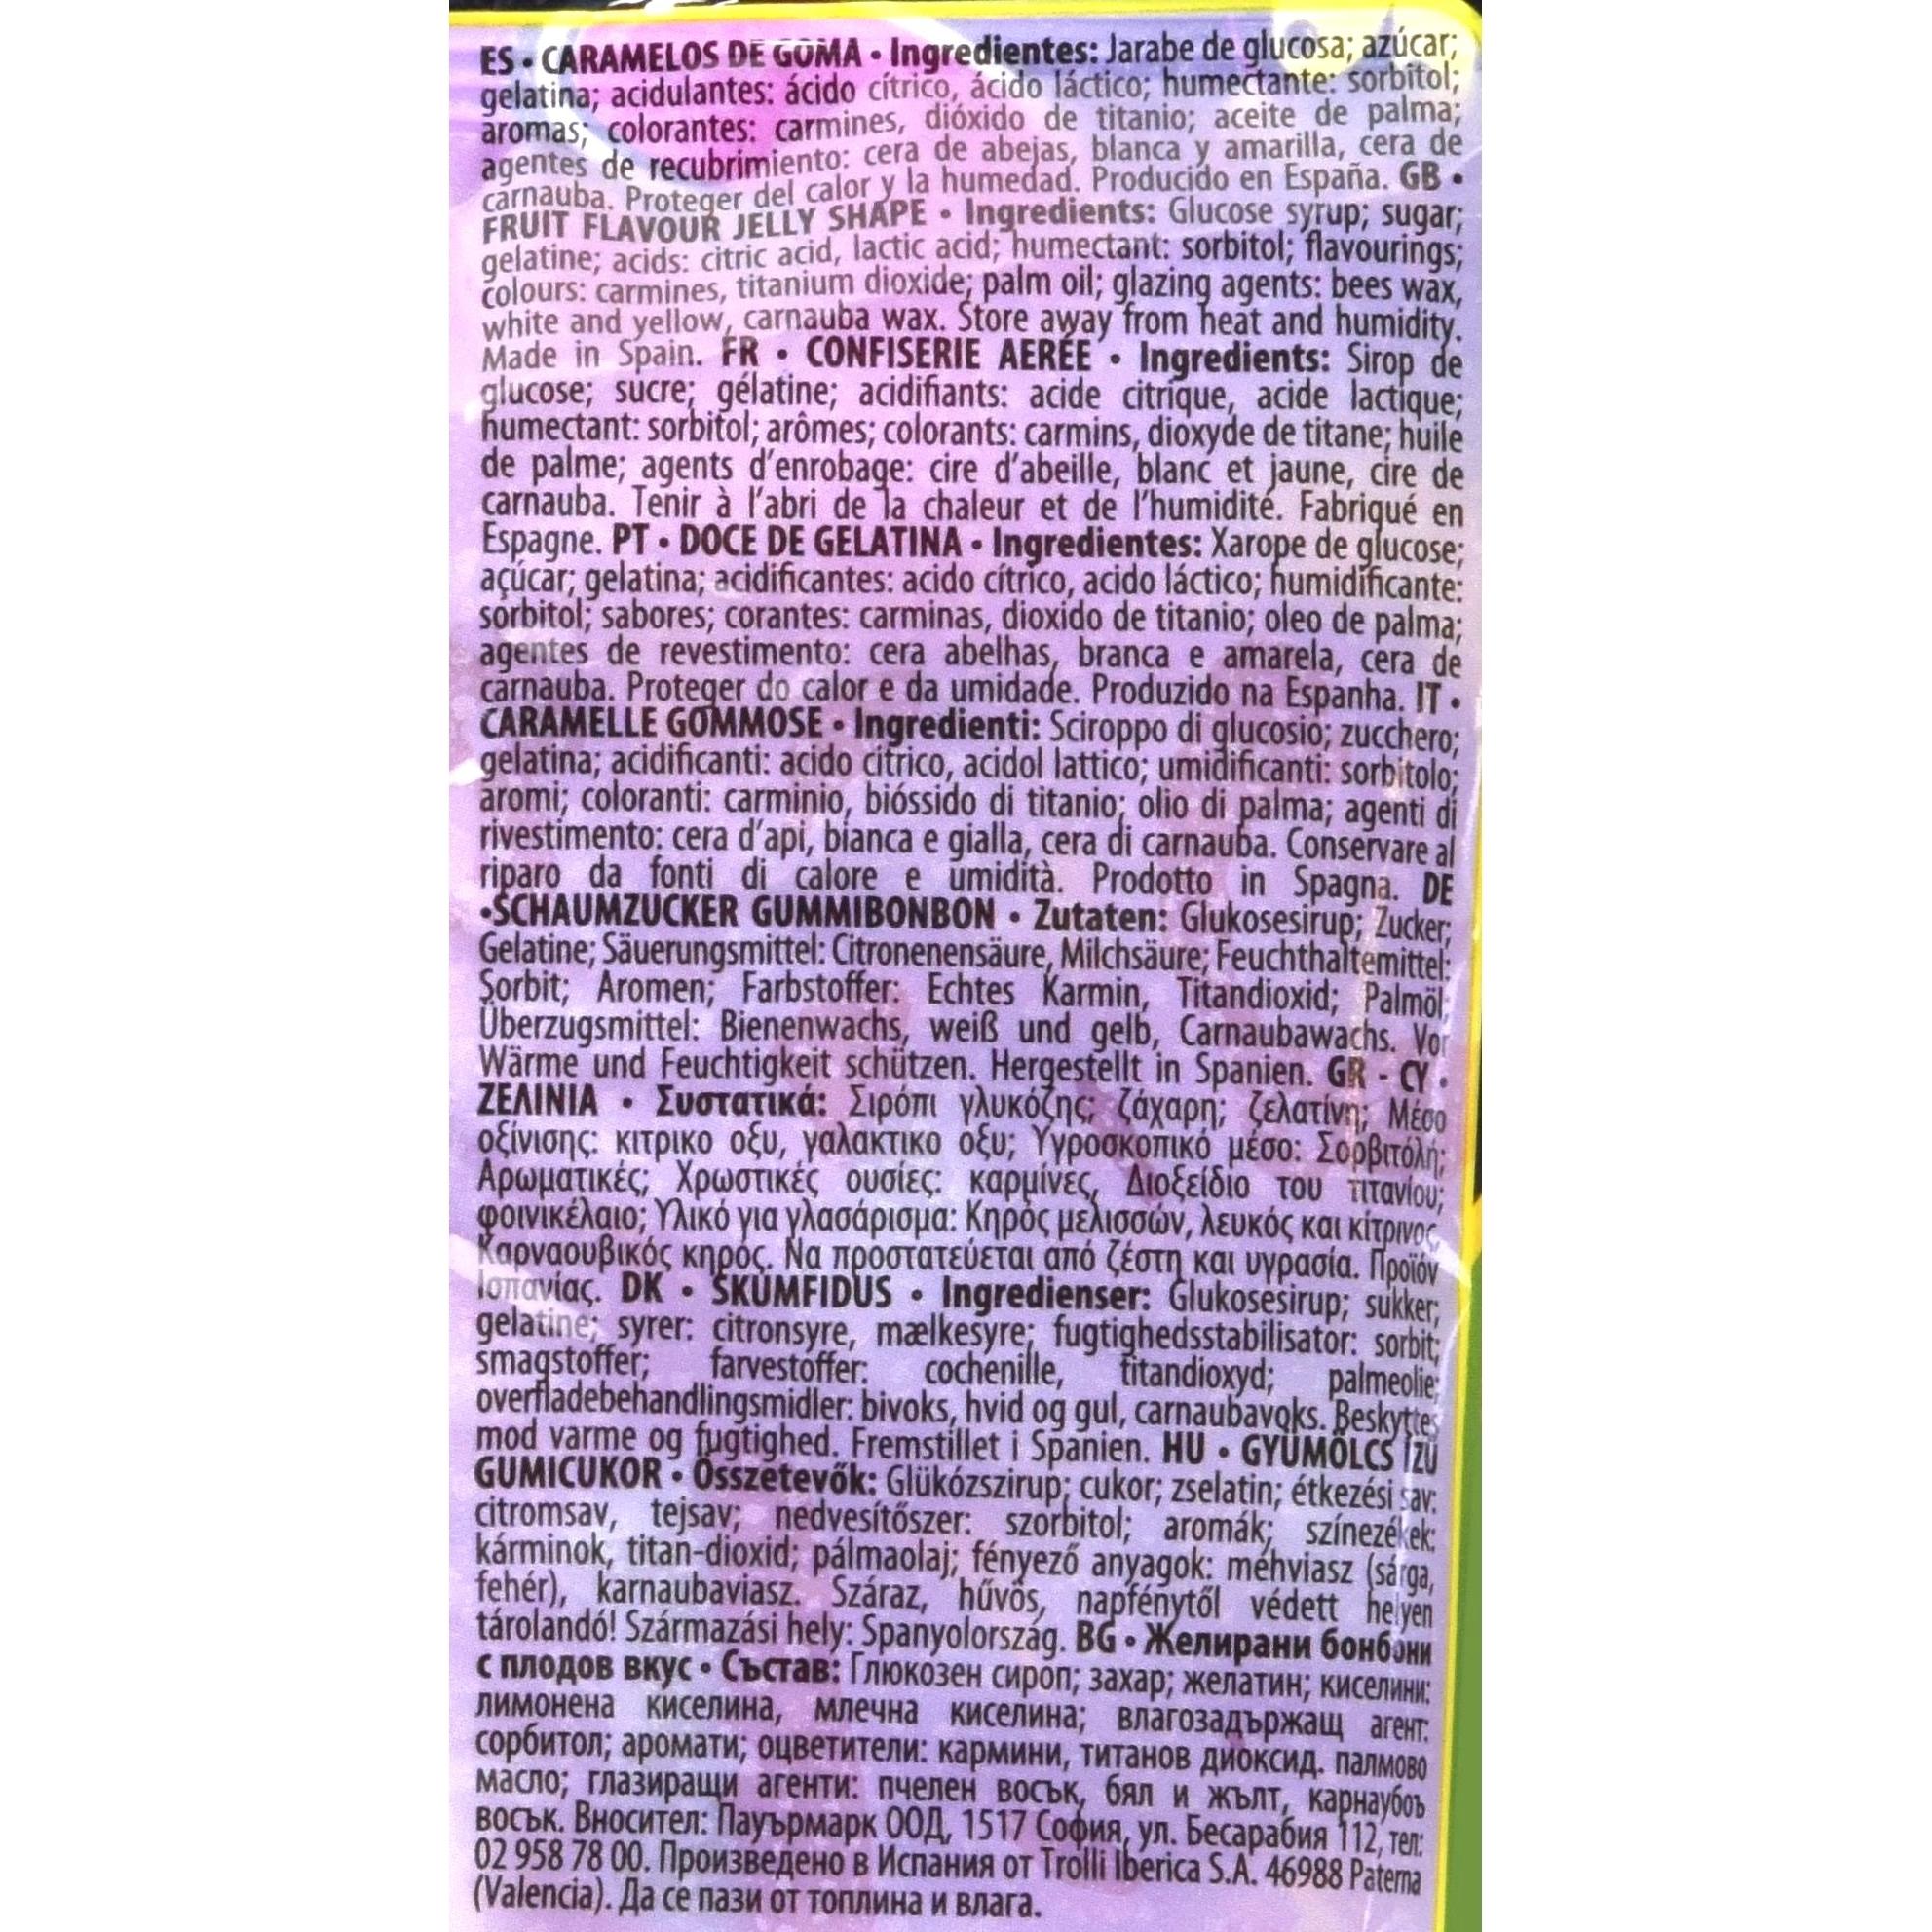 ES • CARAMELOS DE GOMA • Ingredientes: Jarabe de glucosa; azúcar;
gelatina; acidulantes: ácido cítrico, ácido láctico; humectante: sorbitol;
aromas; colorantes: carmines, dióxido de titanio; aceite de palma;
agentes de recubrimiento: cera de abejas, blanca y amarilla, cera de
carnauba. Proteger del calor y la humedad. Producido en España. GB •
FRUIT FLAVOUR JELLY SHAPE • Ingredients: Glucose syrup; sugar;
gelatine; acids: citric acid, lactic acid; humectant: sorbitol; flavourings;
colours: carmines, titanium dioxide; palm oil; glazing agents: bees wax,
white and yellow, carnauba wax. Store away from heat and humidity.
Made in Spain. FR • CONFISERIE AERÉE • Ingredients: Sirop de
glucose; sucre; gélatine; acidifiants: acide citrique, acide lactique;
humectant: sorbitol; arômes; colorants: carmins, dioxyde de titane; huile
de palme; agents d'enrobage: cire d'abeille, blanc et jaune, cire de
carnauba. Tenir à l'abri de la chaleur et de l'humidité. Fabriqué en
Espagne. PT • DOCE DE GELATINA • Ingredientes: Xarope de glucose;
açúcar; gelatina; acidificantes: acido cítrico, acido láctico; humidificante:
sorbitol; sabores; corantes: carminas, dioxido de titanio; oleo de palma;
agentes de revestimento: cera abelhas, branca e amarela, cera de
carnauba. Proteger do calor e da umidade. Produzido na Espanha. IT •
CARAMELLE GOMMOSE • Ingredienti: Sciroppo di glucosio; zucchero;
gelatina; acidificanti: acido citrico, acidol lattico; umidificanti: sorbitolo;
aromi; coloranti: carminio, bióssido di titanio; olio di palma; agenti di
rivestimento: cera d'api, bianca e gialla, cera di carnauba. Conservare al
riparo da fonti di calore e umidità. Prodotto in Spagna. DE
•SCHAUMZUCKER GUMMIBONBON • Zutaten: Glukosesirup; Zucker;
Gelatine; Säuerungsmittel: Citronenensäure, Milchsäure; Feuchthaltemittel:
Sorbit; Aromen; Farbstoffer: Echtes Karmin, Titandioxid; Palmöl;
Überzugsmittel: Bienenwachs, weiß und gelb, Carnaubawachs. Vor
Wärme und Feuchtigkeit schützen. Hergestellt in Spanien. GR - CY •
ΖΕΛΙΝΙΑ • Συστατικά: Σιρόπι γλυκόζης; ζάχαρη; ζελατίνη; Μέσο
οξίνισης: κιτρικο οξυ, γαλακτικο οξυ; Υγροσκοπικό μέσο: Σορβιτόλη;
Αρωματικές; Χρωστικές ουσίες: καρμίνες, Διοξείδιο του τιτανίου;
φοινικέλαιο; Υλικό για γλασάρισμα: Κηρός μελισσών, λευκός και κίτρινος,
Καρναουβικός κηρός. Να προστατεύεται από ζέστη και υγρασία. Προϊόν
Ισπανίας. DK • SKUMFIDUS • Ingredienser: Glukosesirup; sukker;
gelatine; syrer: citronsyre, mælkesyre; fugtighedsstabilisator: sorbit;
smagstoffer; farvestoffer: cochenille, titandioxyd; palmeolie;
overfladebehandlingsmidler: bivoks, hvid og gul, carnaubavoks. Beskyttes
mod varme og fugtighed. Fremstillet i Spanien. HU • GYÜMÖLCS ÍZÜ
GUMICUKOR • Összetevők: Glükózszirup; cukor; zselatin; étkezési sav:
citromsav, tejsav; nedvesítőszer: szorbitol; aromák; színezékek:
kárminok, titan-dioxid; pálmaolaj; fényező anyagok: méhviasz (sárga,
fehér), karnaubaviasz. Száraz, hűvös, napfénytől védett helyen
tárolandó! Származási hely: Spanyolország. BG • Желирани бонбони
с плодов вкус • Състав: Глюкозен сироп; захар; желатин; киселини:
лимонена киселина, млечна киселина; влагозадържащ агент:
сорбитол; аромати; оцветители: кармини, титанов диоксид. палмово
масло; глазиращи агенти: пчелен восък, бял и жълт, карнаубов
восък. Вносител: Пауърмарк ООД, 1517 София, ул. Бесарабия 112, тел:
02 958 78 00. Произведено в Испания от Trolli Iberica S.A. 46988 Paterna
(Valencia). Да се пази от топлина и влага.